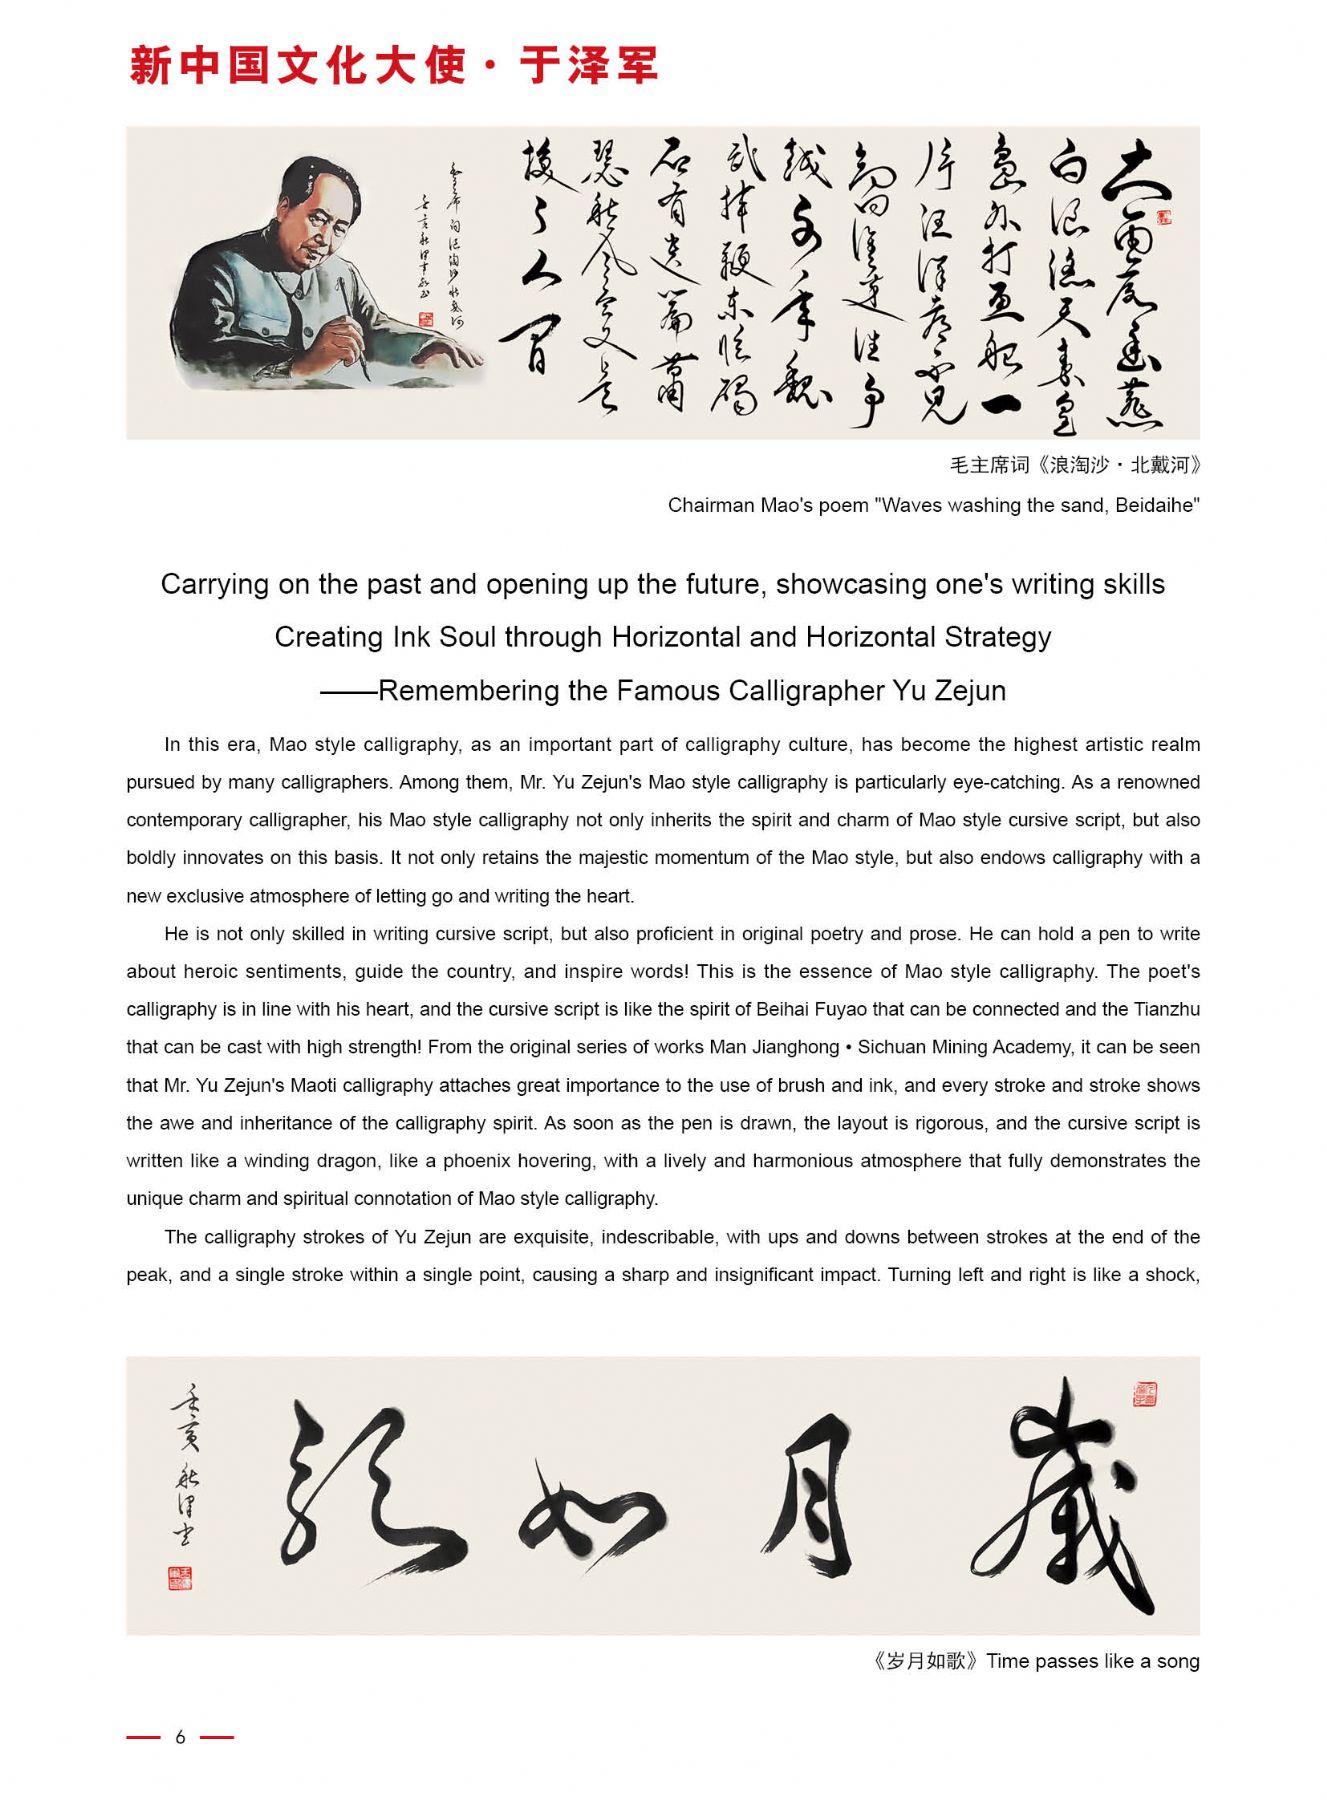 新中国文化大使·于泽军
大雨落幽燕
白浪滔天秦皇
岛外打鱼船一
片汪洋都不见
知向谁边往事
越千年魏
武挥鞭东临碣
石有遗篇萧
瑟秋风今又是
换了人间
毛主席词浪淘沙北戴河
毛主席词《浪淘沙·北戴河》
Chairman Mao's poem "Waves washing the sand, Beidaihe"
Carrying on the past and opening up the future, showcasing one's writing skills
Creating Ink Soul through Horizontal and Horizontal Strategy
——Remembering the Famous Calligrapher Yu Zejun
In this era, Mao style calligraphy, as an important part of calligraphy culture, has become the highest artistic realm
pursued by many calligraphers. Among them, Mr. Yu Zejun's Mao style calligraphy is particularly eye-catching. As a renowned
contemporary calligrapher, his Mao style calligraphy not only inherits the spirit and charm of Mao style cursive script, but also
boldly innovates on this basis. It not only retains the majestic momentum of the Mao style, but also endows calligraphy with a
new exclusive atmosphere of letting go and writing the heart.
He is not only skilled in writing cursive script, but also proficient in original poetry and prose. He can hold a pen to write
about heroic sentiments, guide the country, and inspire words! This is the essence of Mao style calligraphy. The poet's
calligraphy is in line with his heart, and the cursive script is like the spirit of Beihai Fuyao that can be connected and the Tianzhu
that can be cast with high strength! From the original series of works Man Jianghong • Sichuan Mining Academy, it can be seen
that Mr. Yu Zejun's Maoti calligraphy attaches great importance to the use of brush and ink, and every stroke and stroke shows
the awe and inheritance of the calligraphy spirit. As soon as the pen is drawn, the layout is rigorous, and the cursive script is
written like a winding dragon, like a phoenix hovering, with a lively and harmonious atmosphere that fully demonstrates the
unique charm and spiritual connotation of Mao style calligraphy.
The calligraphy strokes of Yu Zejun are exquisite, indescribable, with ups and downs between strokes at the end of the
peak, and a single stroke within a single point, causing a sharp and insignificant impact. Turning left and right is like a shock,
歲月如歌
《岁月如歌》Time passes like a song
6